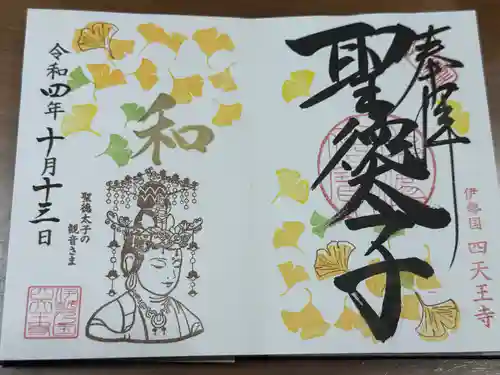 奉拝
聖徳太子
伊勢国 四天王寺
和
令和四年十月十三日
聖徳太子の
観音さま